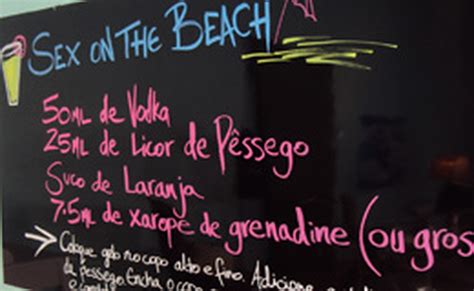 SEX ON THE BEACH
50ML de Vodka
25ML de Licor de Pêssego
Suco de Laranja
7.5ML de xarope de grenadine (ou gros
Coloque gelo no copo alto e fino. Adicione
da pêssego. Encha o copo